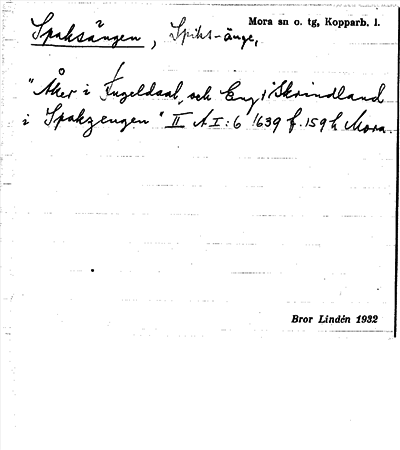 Mora sn o. tg, Kopparb. l.
Spaksängen, Spiks-änge,
"Åker i Fugeldaal, och Eng i Skrindland
i Spakzengen" II A I: 6 1639 f. 159 h Mora.
Bror Lindén 1932